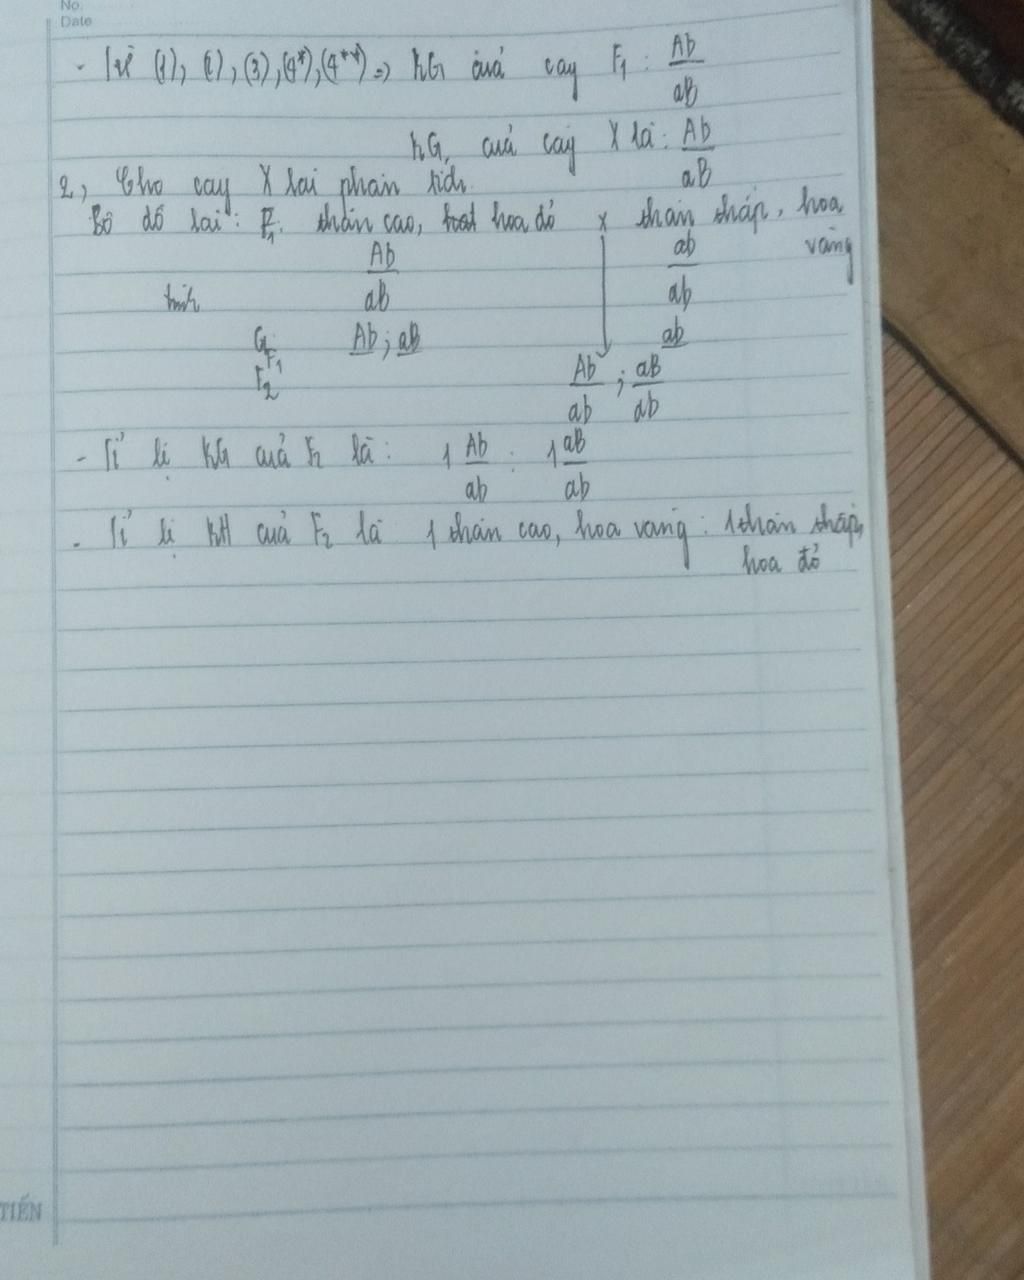 No.
Date
- Từ (1), (2), (3), (4*), (4**) => KG của cây F1 : Ab
aB
KG của cây X là : Ab
aB
2, Cho cây X lai phân tích.
Sơ đồ lai : F1: thân cao, hoa đỏ x thân thấp, hoa vàng
Ab ab
ab ab
G Ab ; aB ab
F1
F2 Ab ; aB
ab ab
- Tỉ lệ KG của F2 là : 1 Ab : 1 aB
ab ab
- Tỉ lệ KH của F2 là 1 thân cao, hoa vàng : 1 thân thấp,
hoa đỏ
TIẾN